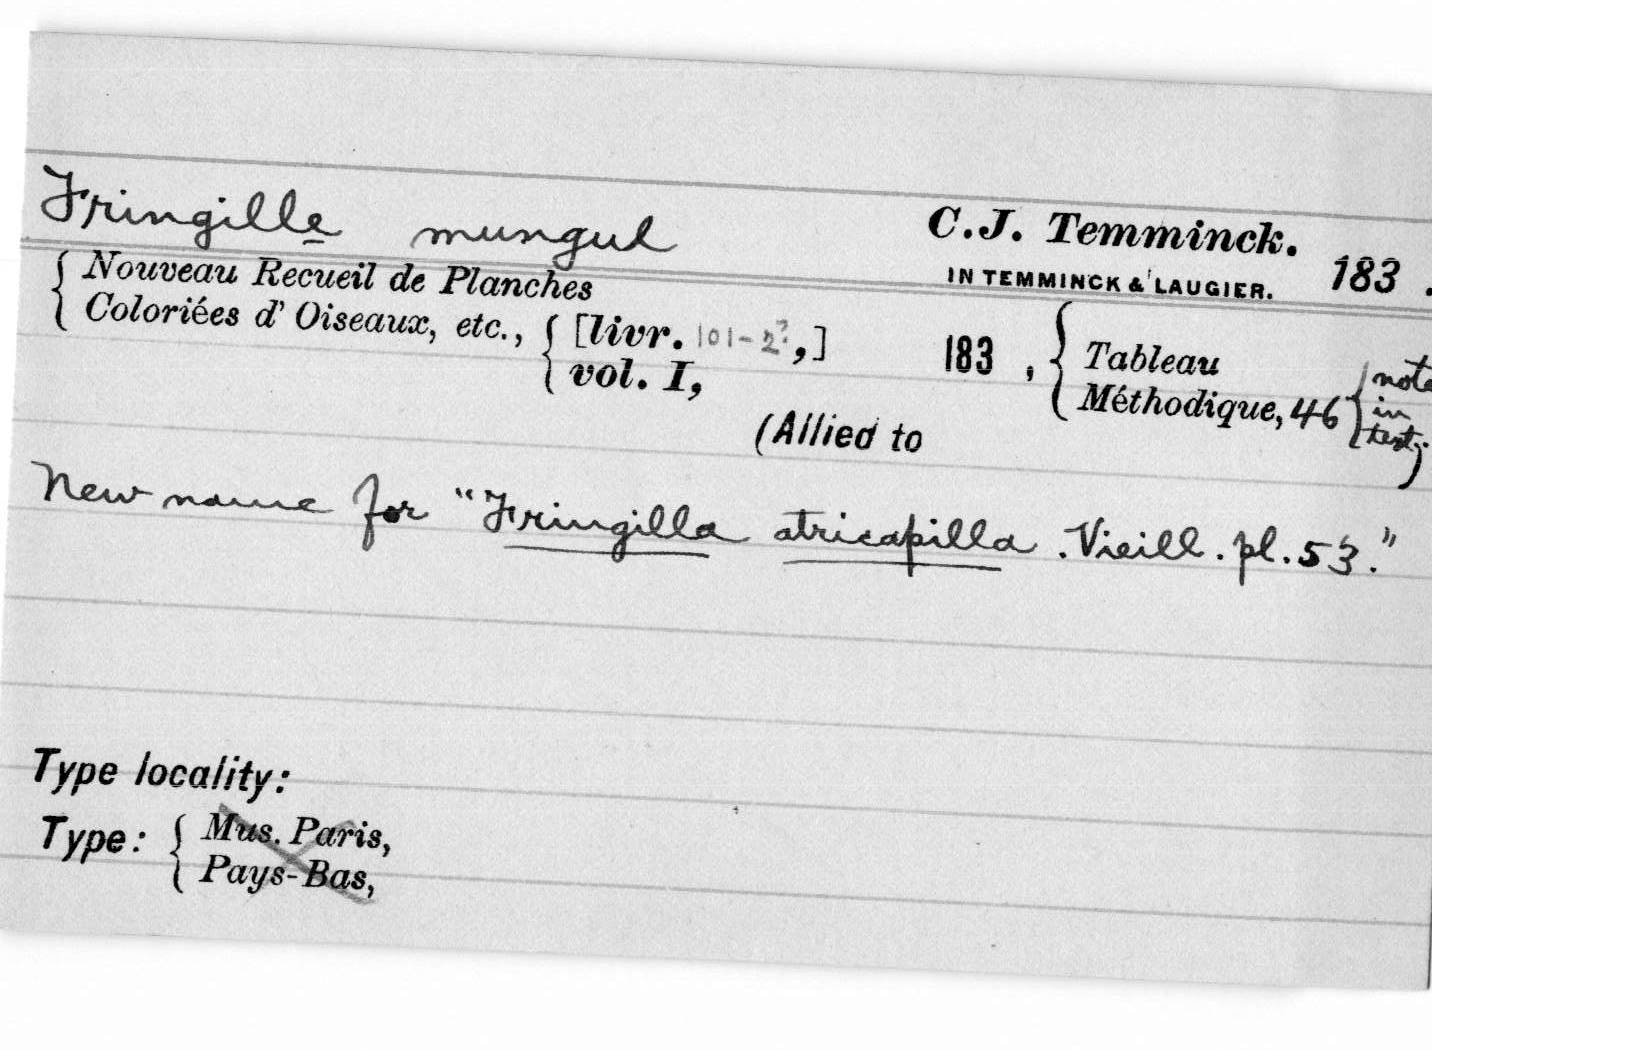 Fringille mungul
C.J. Temminck.
IN TEMMINCK & LAUGIER.
183 .
{ Nouveau Recueil de Planches
Coloriées d' Oiseaux, etc.,
{ [livr. 101-2?,]
vol. I,
183 ,
{ Tableau
Méthodique, 46
{ note
in
text.)
(Allied to
New name for "Fringilla atricapilla . Vieill. pl. 53."
Type locality:
Type: { Mus. Paris,
Pays-Bas,